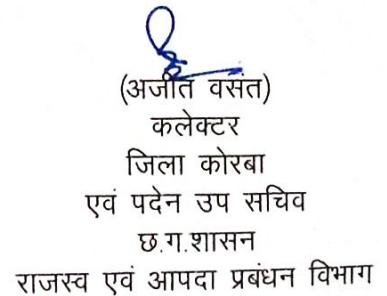 (अजीत वसंत)
कलेक्टर
जिला कोरबा
एवं पदेन उप सचिव
छ.ग.शासन
राजस्व एवं आपदा प्रबंधन विभाग